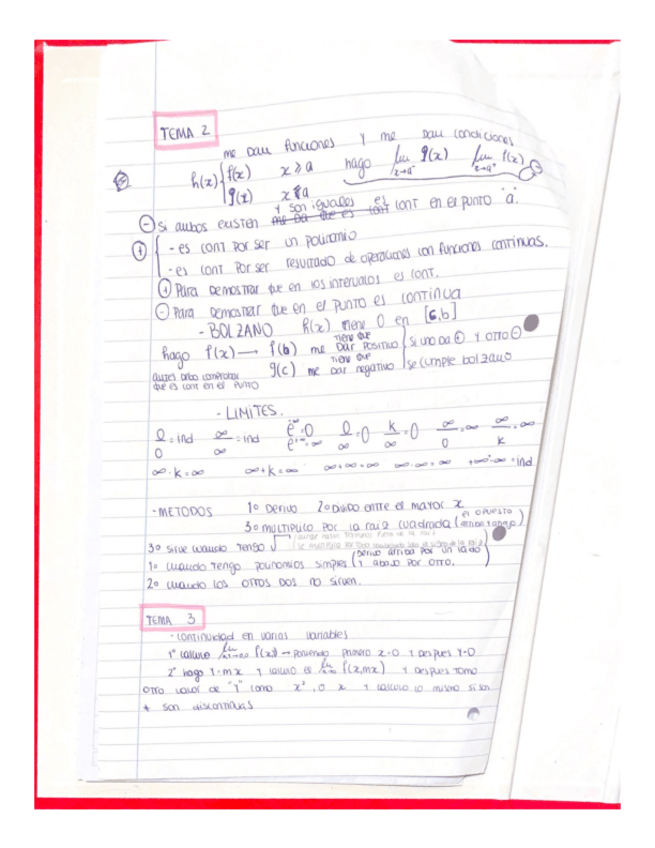 TEMA 2
me dan funciones y me dan condiciones
h(x) { f(x) x ⩾ a hago lim x→a⁻ g(x) lim x→a⁺ f(x)
g(x) x < a
y son iguales es
⊖ Si ambos existen me da que es cont cont en el punto "a".
⊕ - es cont por ser un polinomio
- es cont por ser resultado de operaciones con funciones continuas.
⊕ Para demostrar que en los intervalos es cont.
⊖ Para demostrar que en el punto es continua
- BOLZANO h(x) tiene 0 en [c,b]
hago f(x) → f(b) me tiene que dar positivo { si uno da ⊕ y otro ⊖
g(c) me tiene que dar negativo { se cumple bolzano
antes debo comprobar
que es cont en el punto
- LIMITES.
0/0 = ind ∞/∞ = ind e^-∞ = 0 0/∞ = 0 k/∞ = 0 ∞/0 = ∞ ∞/k = ∞
e^+∞ = ∞
∞·k = ∞ ∞+k = ∞ ∞+∞ = ∞ ∞·∞ = ∞ +∞-∞ = ind
- METODOS 1º Derivo 2º Divido entre el mayor x
3º multiplico por la raiz cuadrada (el opuesto arriba y abajo)
3º sirve cuando tengo √
1º cuando tengo polinomios simples (Derivo arriba por un lado y abajo por otro.)
2º cuando los otros dos no sirven.
TEMA 3
- continuidad en varias variables
1º calculo lim f(x,y) → poniendo primero x=0 y despues y=0
2º hago y=mx y calculo el lim f(x,mx) y despues tomo
otro valor de "y" como x², o x y calculo lo mismo si son
≠ son discontinuas